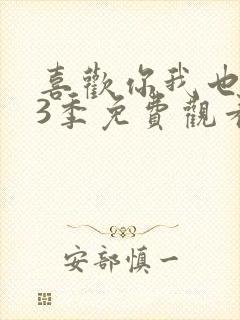 喜歡你我也
3季免費觀看
安部慎一